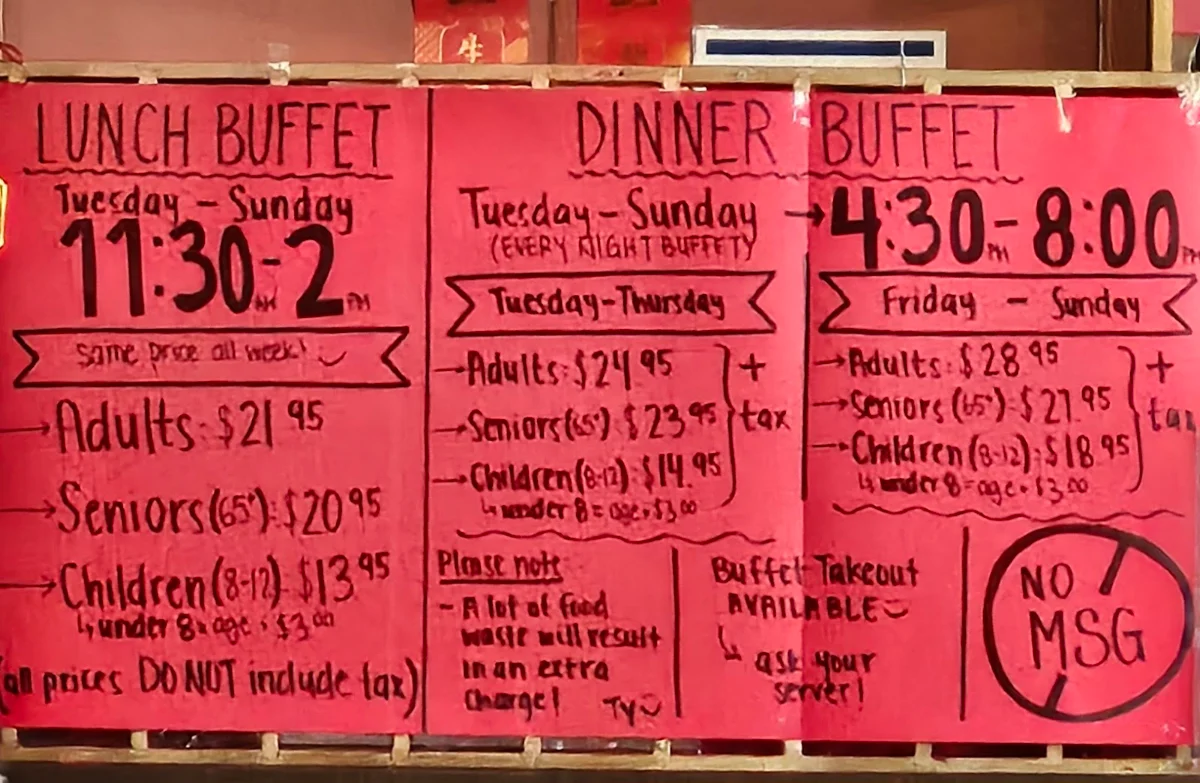 牛
LUNCH BUFFET
Tuesday - Sunday
11:30AM - 2PM
Same price all week!
→ Adults: $21.95
→ Seniors (65+): $20.95
→ Children (8-12): $13.95
↳ under 8 = age × $3.00
(all prices DO NOT include tax)
DINNER BUFFET
Tuesday - Sunday → 4:30PM - 8:00PM
(EVERY NIGHT BUFFET!)
Tuesday - Thursday
→ Adults: $24.95
→ Seniors (65+): $23.95
→ Children (8-12): $14.95
↳ under 8 = age × $3.00
+
tax
Friday - Sunday
→ Adults: $28.95
→ Seniors (65+): $27.95
→ Children (8-12): $18.95
↳ under 8 = age × $3.00
+
tax
Please note
- A lot of food
waste will result
in an extra
charge! TY
Buffet Takeout
AVAILABLE
↳ ask your
server!
NO
MSG